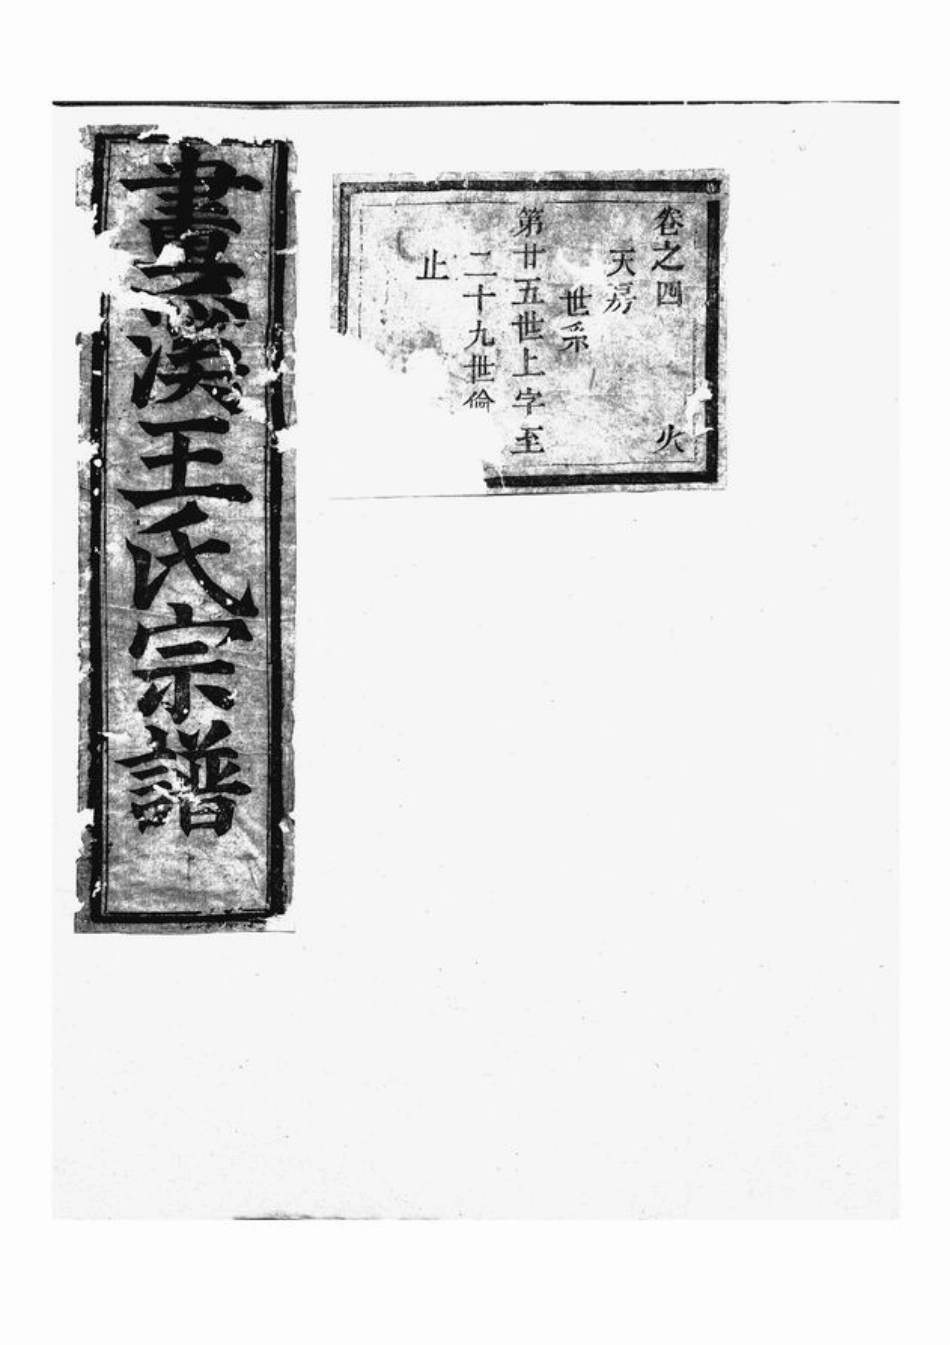 卷之四 火
天房
世系
第廿五世上字至
二十九世倫
止
畫溪王氏宗譜